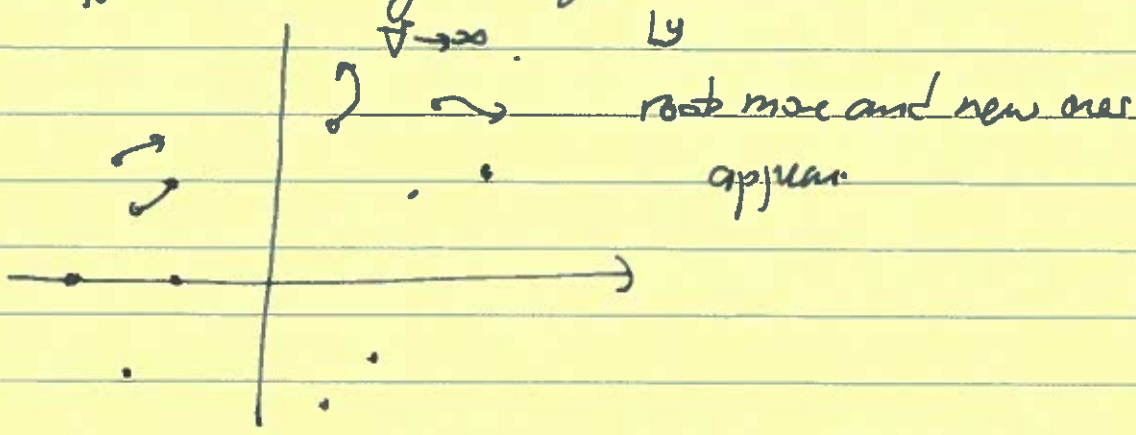 V → ∞ Ly
roots move and new ones
appear.